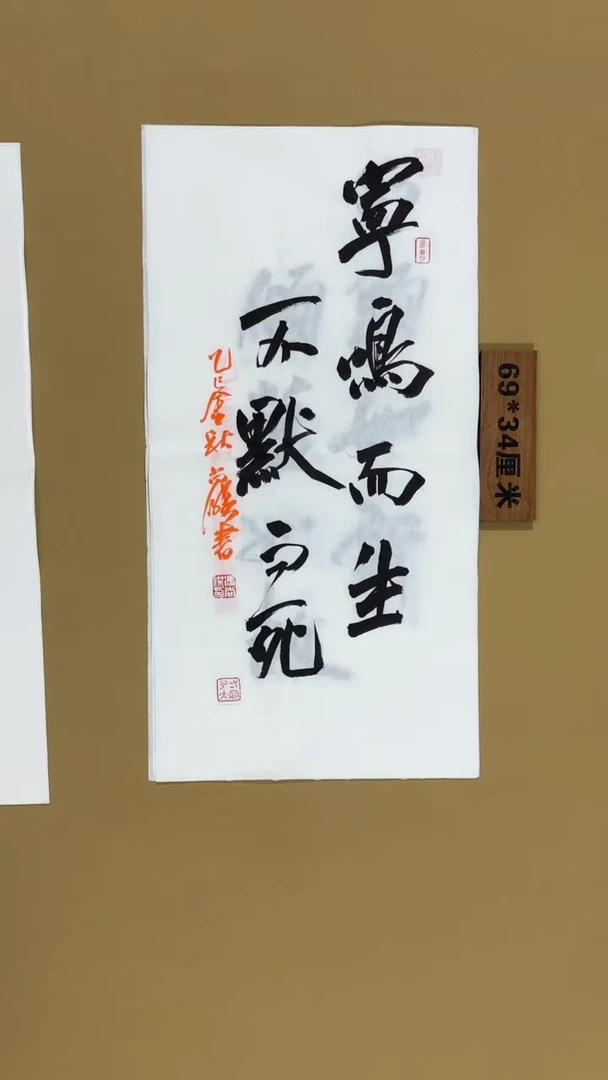 寧鳴而生
不默而死
乙巳金秋 書
69*34厘米